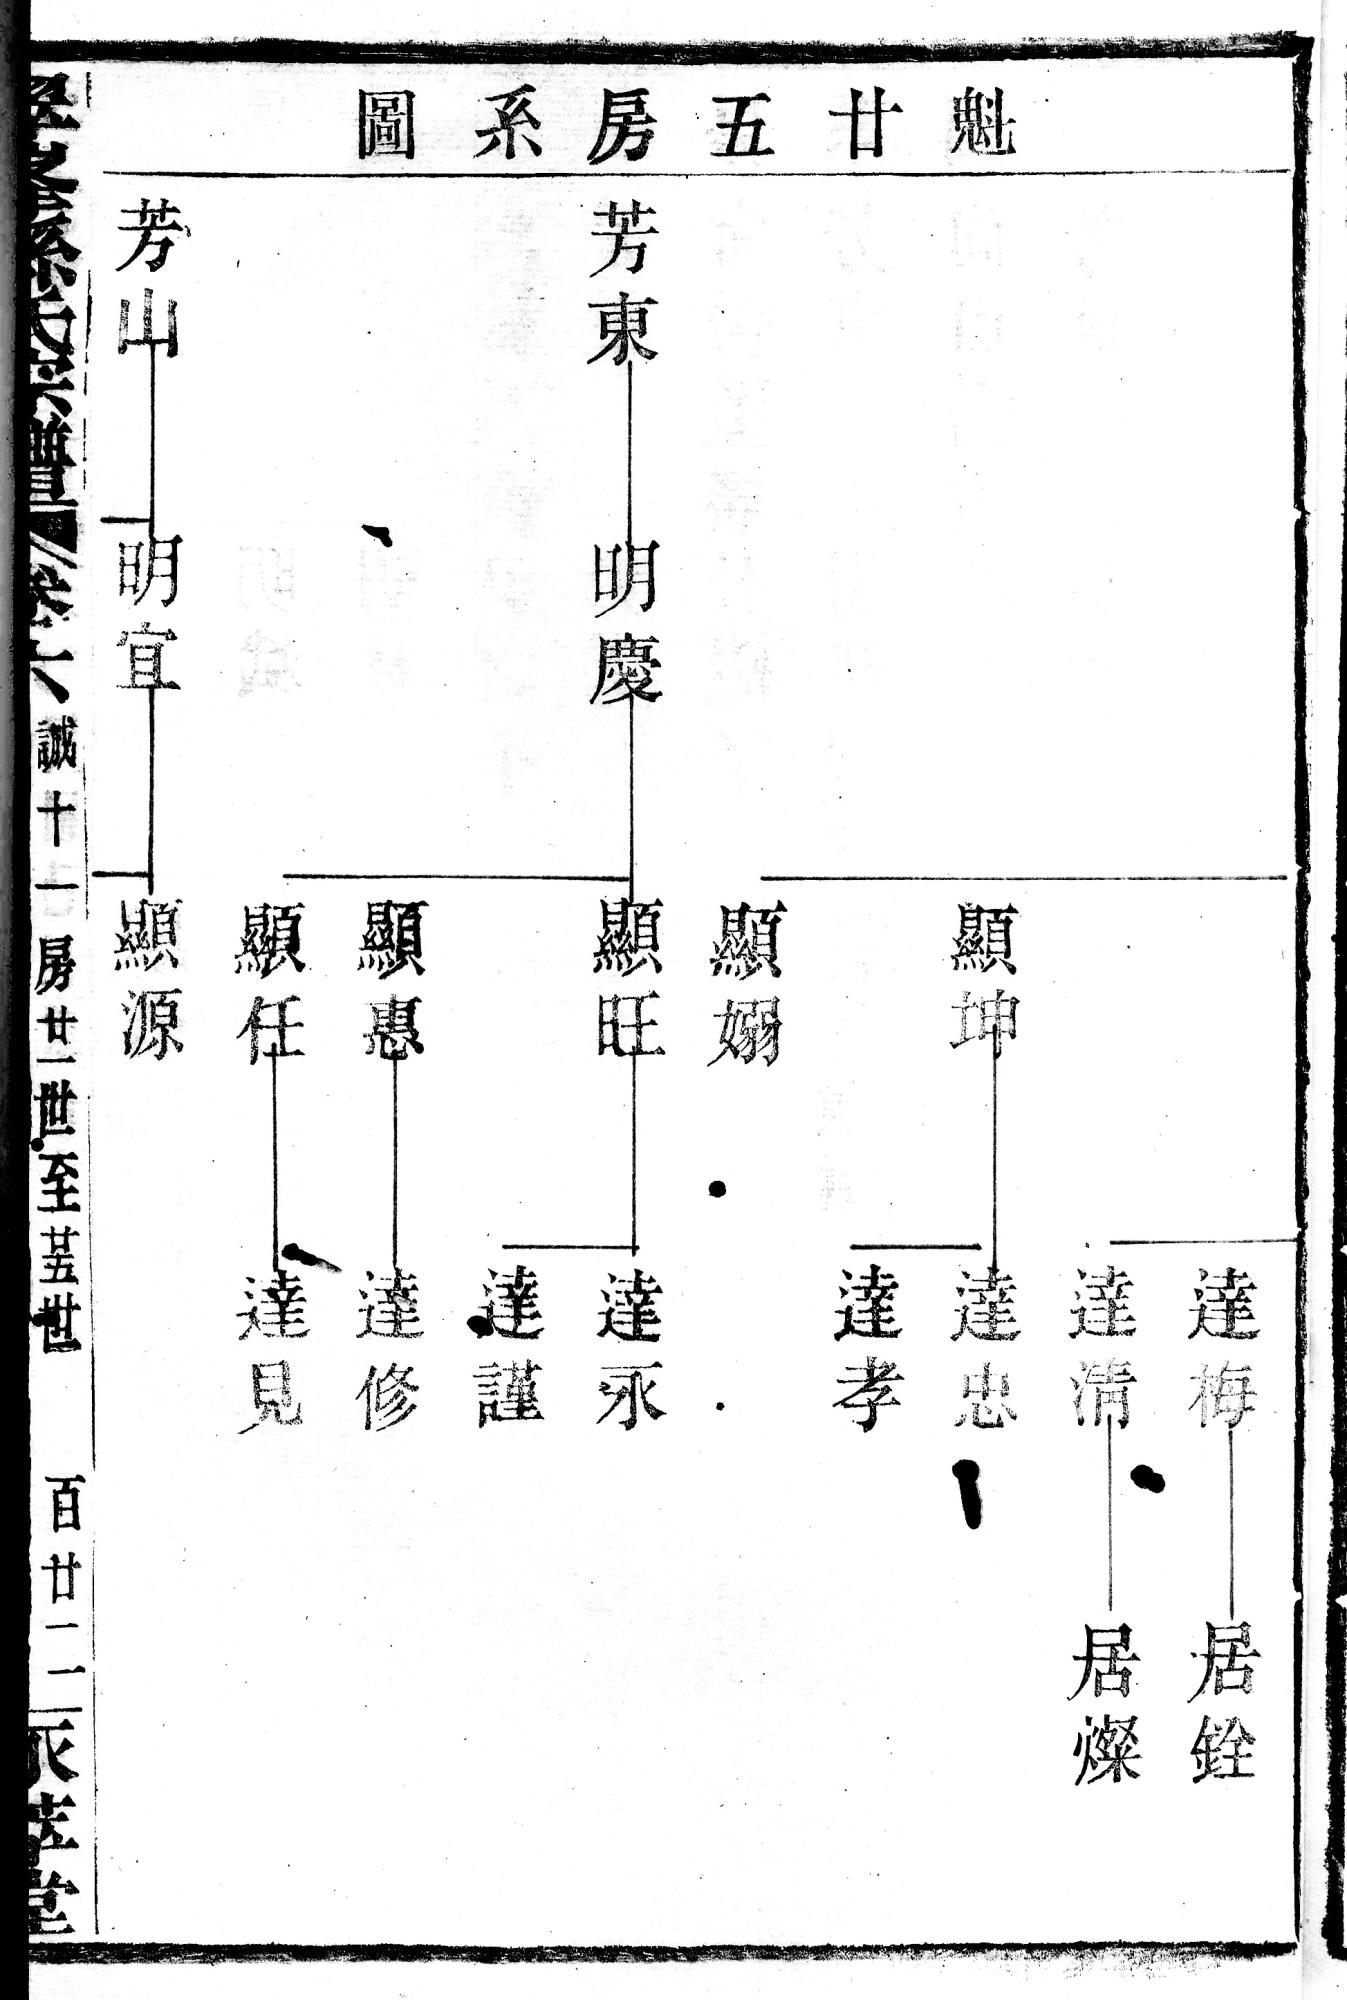 魁廿五房系圖
芳東
芳山
明慶
明宜
顯坤
顯嫋
顯旺
顯惠
顯任
顯源
達梅
達清
達忠
達孝
達永
達謹
達修
達見
居銓
居燦
孫氏宗譜
卷六
誠十一房廿一世至廿五世
百廿二
堂